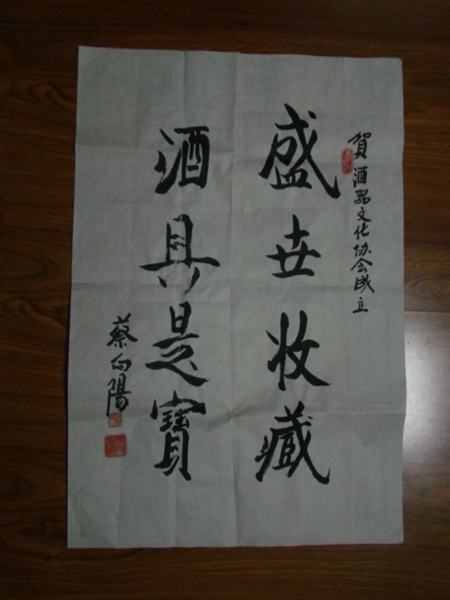 賀酒器文化协会成立
盛世收藏
酒具是寶
蔡向陽